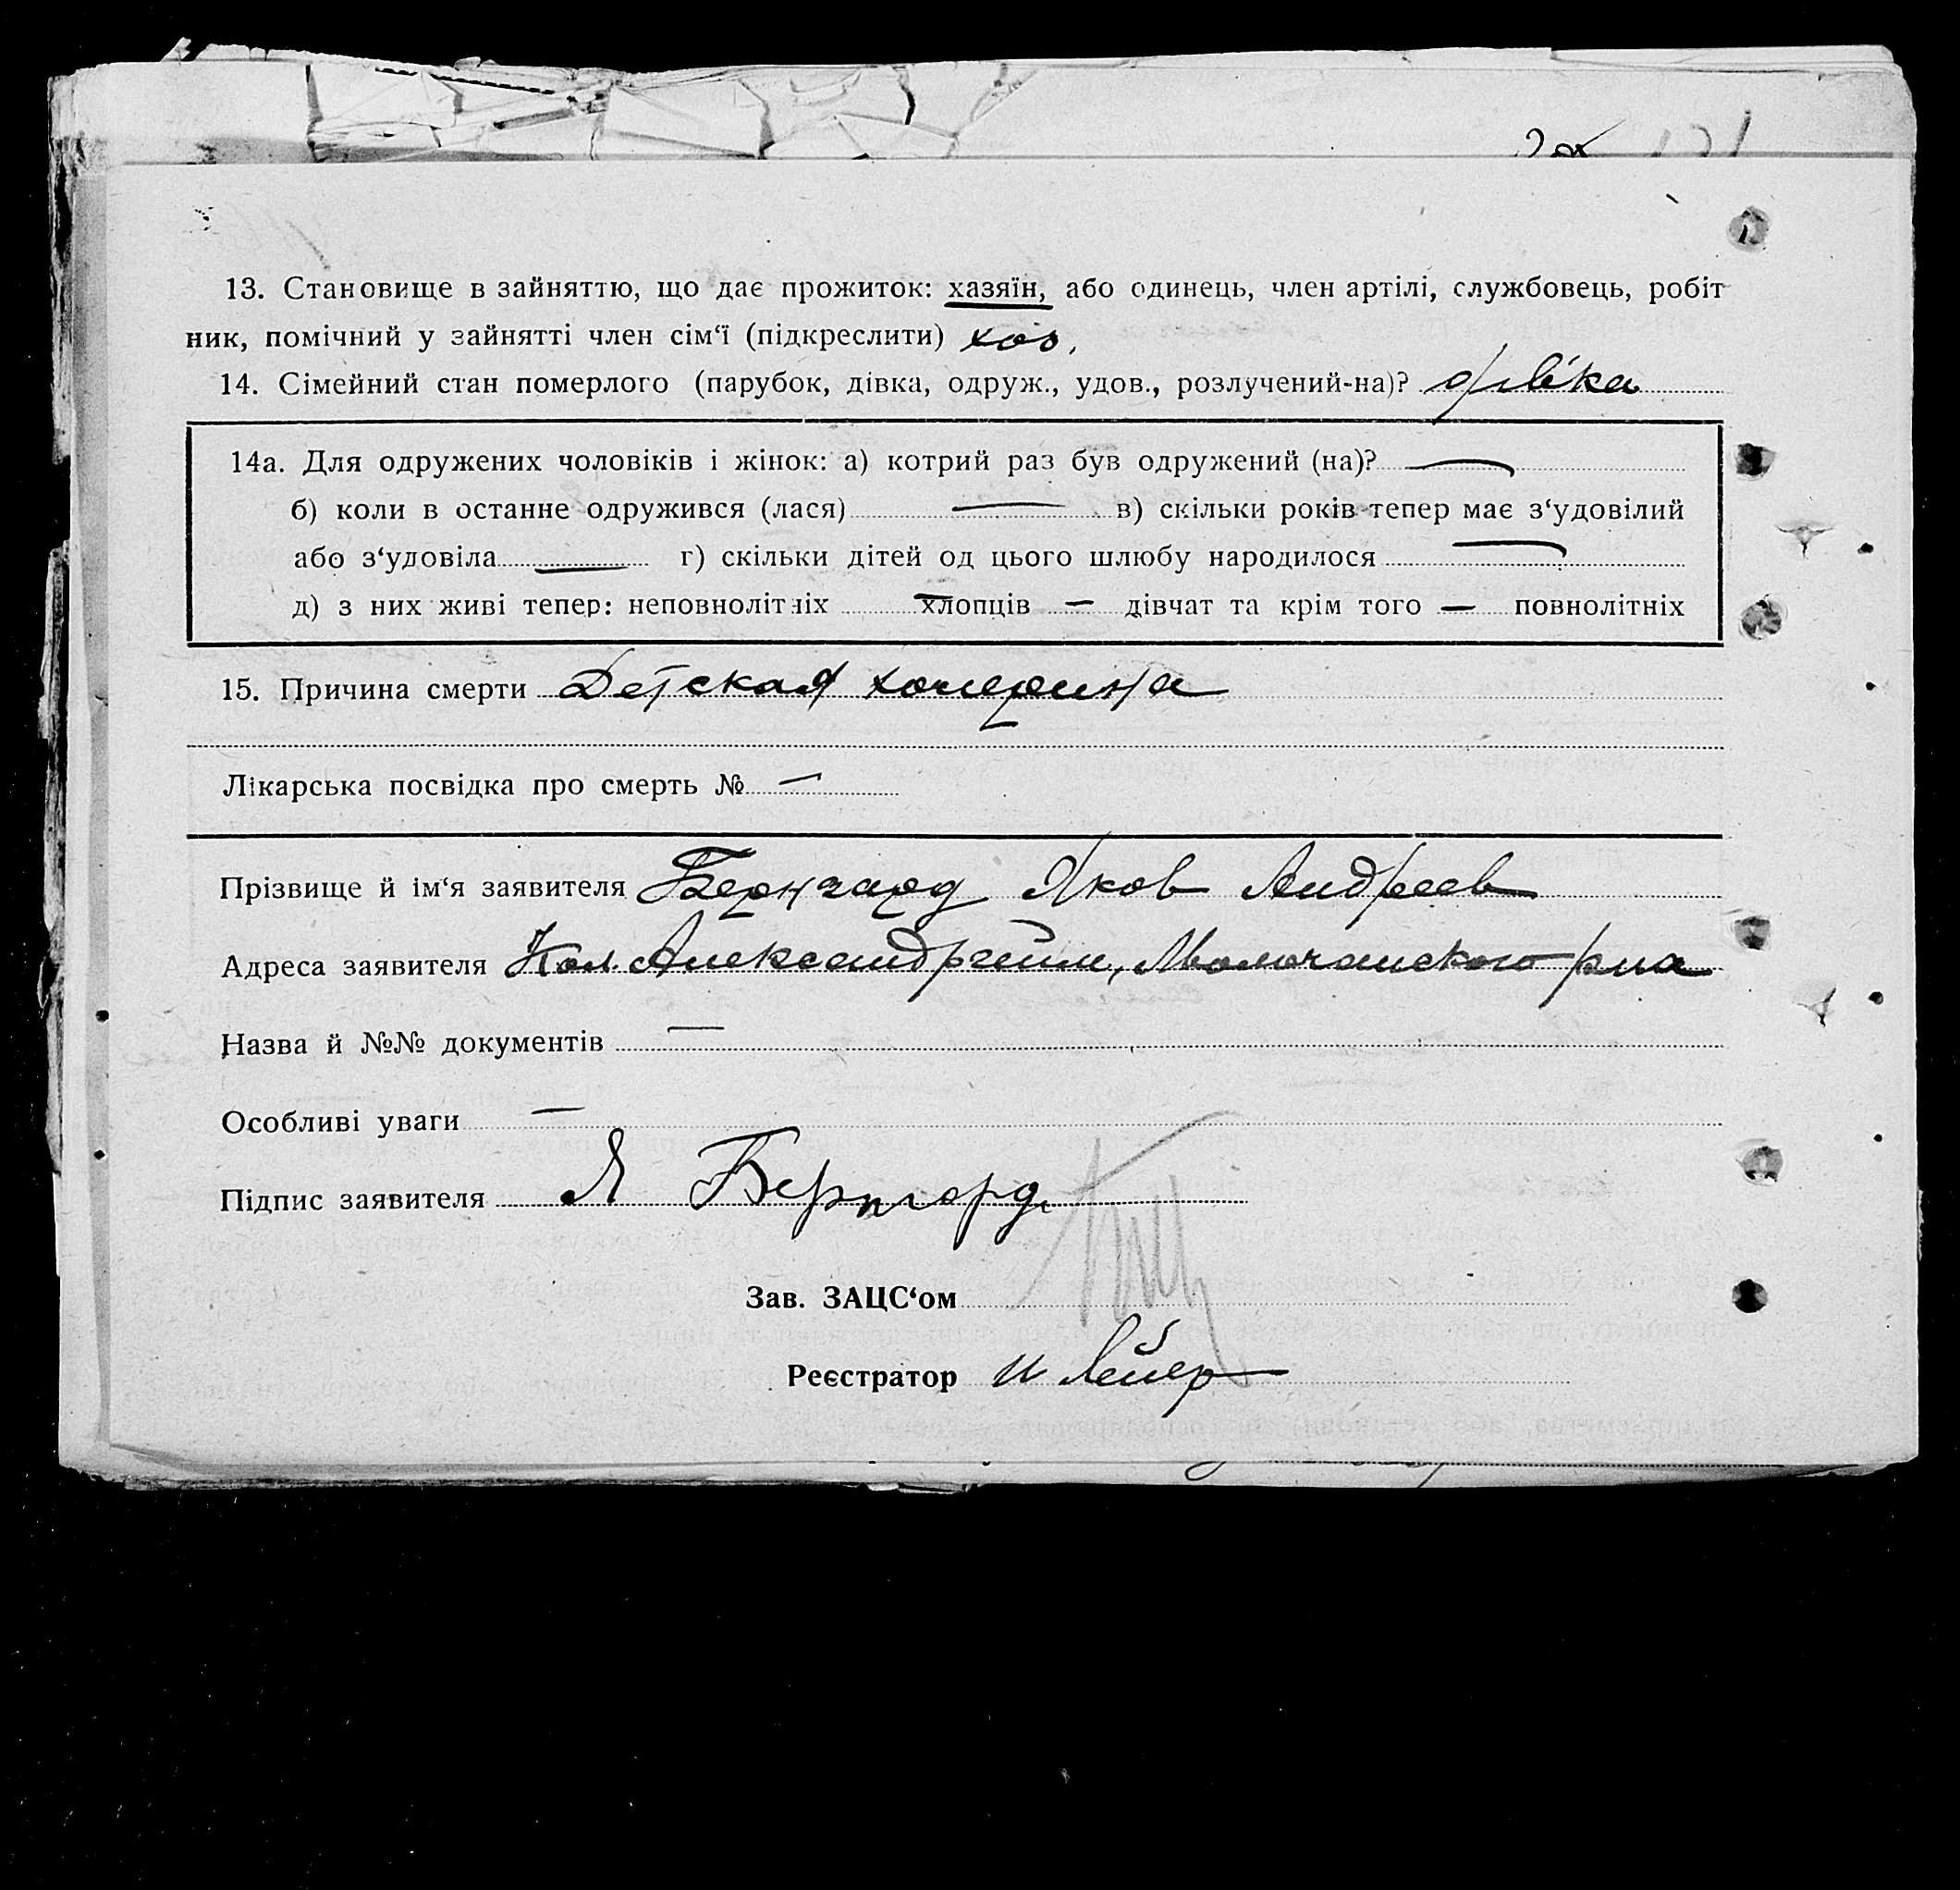 13. Становище в зайняттю, що дає прожиток: хазяїн, або одинець, член артілі, службовець, робіт
ник, помічний у зайнятті член сім‘ї (підкреслити) хоз,
14. Сімейний стан померлого (парубок, дівка, одруж., удов., розлучений-на)? дівка
14а. Для одружених чоловіків і жінок: а) котрий раз був одружений (на)? —
б) коли в останнє одружився (лася) — в) скільки років тепер має з‘удовілий
або з‘удовіла — г) скільки дітей од цього шлюбу народилося —
д) з них живі тепер: неповнолітніх — хлопців — дівчат та крім того — повнолітніх
15. Причина смерти Детская холерина
Лікарська посвідка про смерть № —
Прізвище й ім‘я заявителя Бернгард Яков Андреев
Адреса заявителя Кол. Александргейм, Молочанского рна
Назва й №№ документів —
Особливі уваги —
Підпис заявителя Я Бернгард
Зав. ЗАЦС‘ом
Реєстратор И Лейер